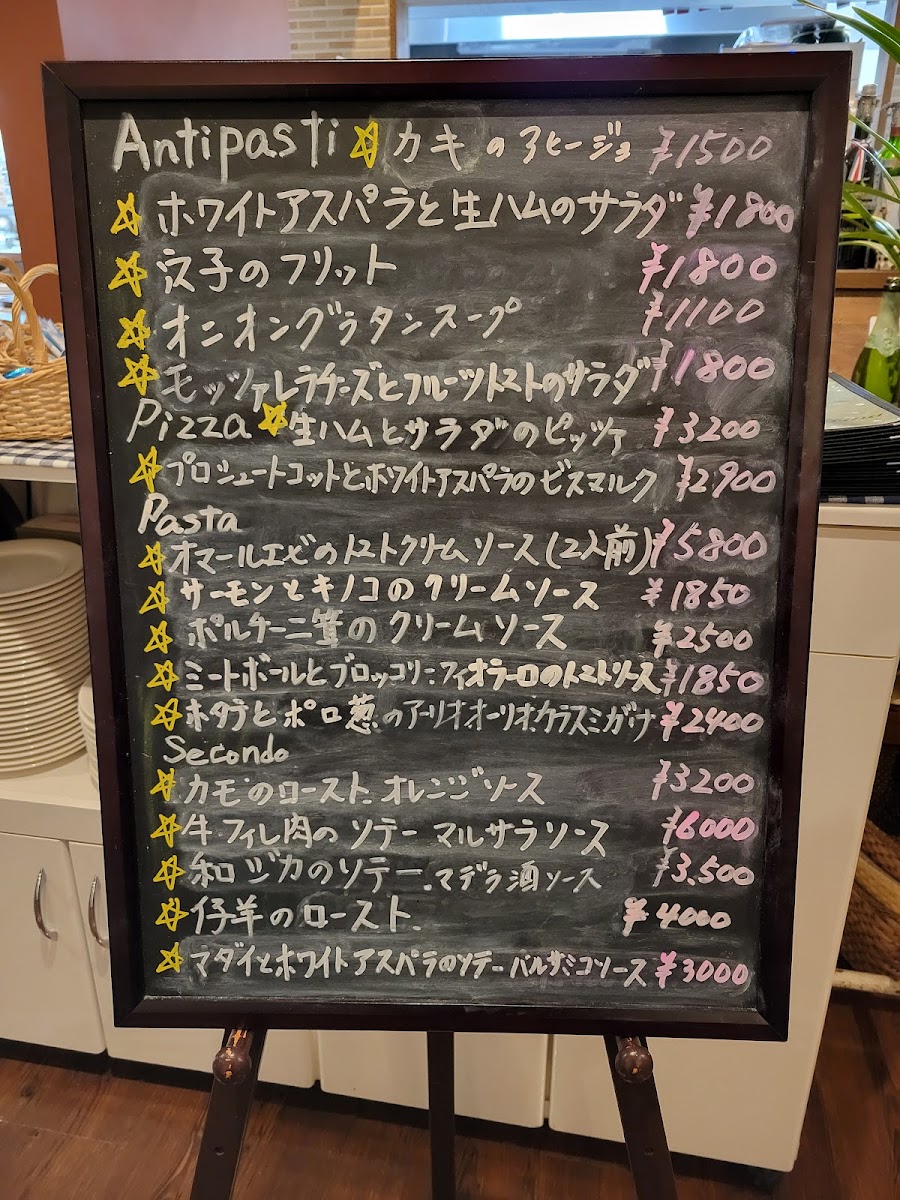 Antipasti ☆ カキのアヒージョ ¥1500
☆ ホワイトアスパラと生ハムのサラダ ¥1800
☆ 穴子のフリット ¥1800
☆ オニオングラタンスープ ¥1100
☆ モッツァレラチーズとフルーツトマトのサラダ ¥1800
Pizza ☆ 生ハムとサラダのピッツァ ¥3200
☆ プロシュートコットとホワイトアスパラのビスマルク ¥2900
Pasta
☆ オマールエビのトマトクリームソース(2人前) ¥5800
☆ サーモンとキノコのクリームソース ¥1850
☆ ポルチーニ茸のクリームソース ¥2500
☆ ミートボールとブロッコリーフィオラーロのトマトソース ¥1850
☆ ホタテとポロ葱のアーリオオーリオ.カラスミがけ ¥2400
Secondo
☆ カモのロースト.オレンジソース ¥3200
☆ 牛フィレ肉のソテー マルサラソース ¥6000
☆ 和ジカのソテー.マデラ酒ソース ¥3,500
☆ 仔羊のロースト. ¥4000
☆ マダイとホワイトアスパラのソテーバルサミコソース ¥3000